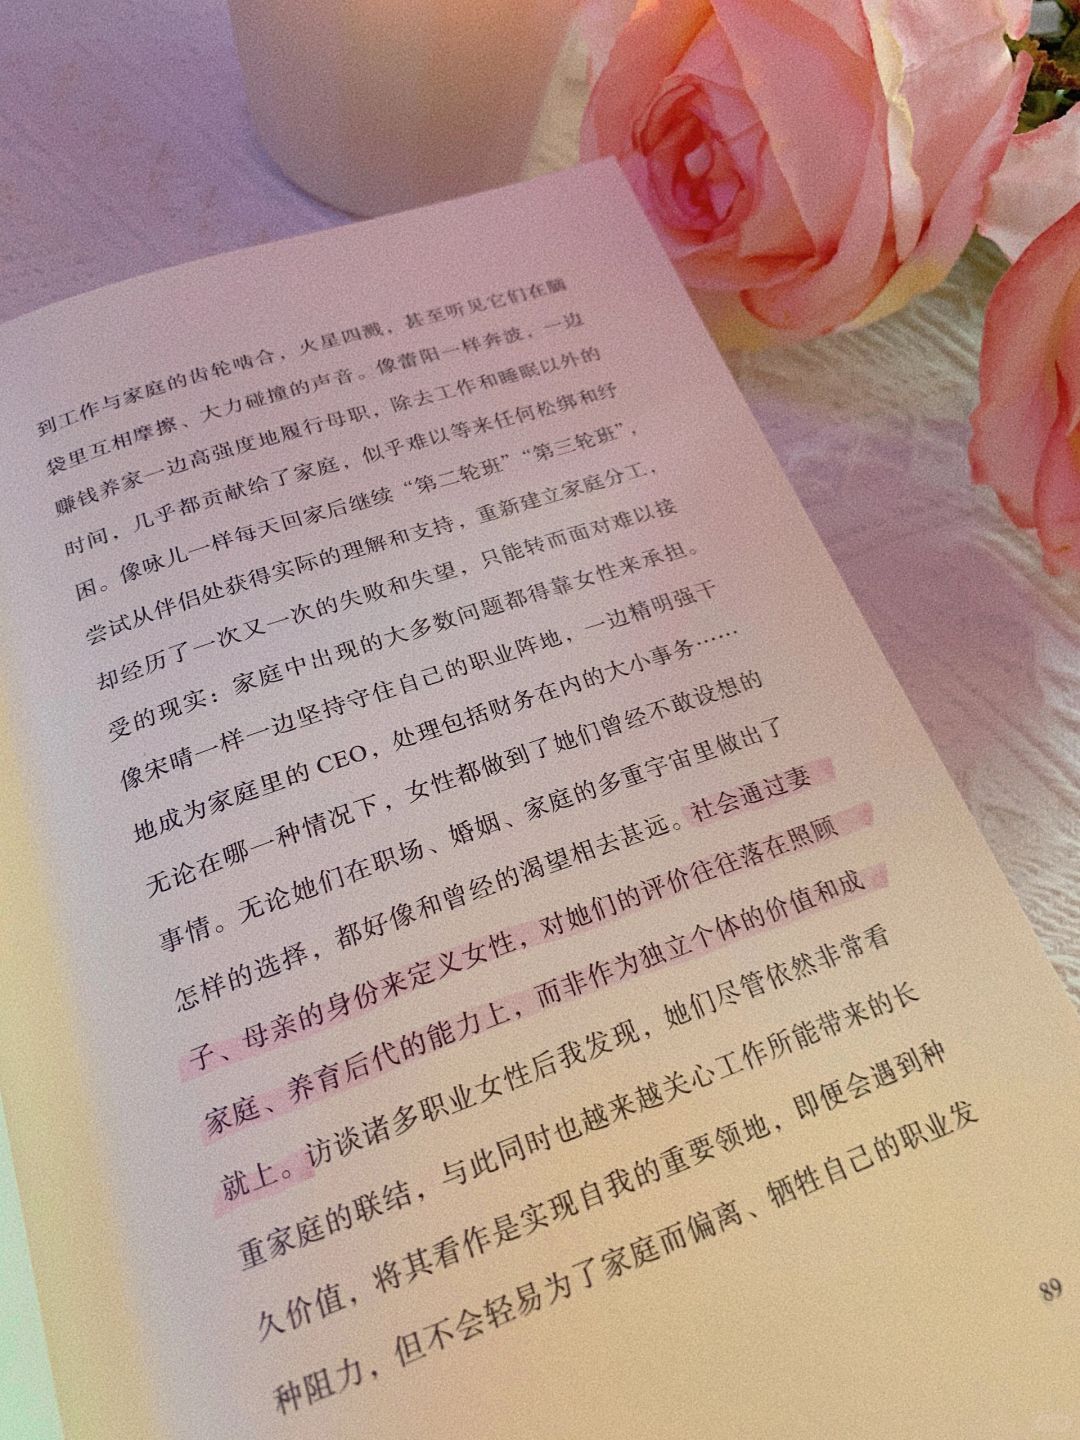 到工作与家庭的齿轮啮合，火星四溅，甚至听见它们在脑
袋里互相摩擦、大力碰撞的声音。像蕾阳一样奔波，一边
赚钱养家一边高强度地履行母职，除去工作和睡眠以外的
时间，几乎都贡献给了家庭，似乎难以等来任何松绑和纾
困。像咏儿一样每天回家后继续“第二轮班”“第三轮班”，
尝试从伴侣处获得实际的理解和支持，重新建立家庭分工，
却经历了一次又一次的失败和失望，只能转而面对难以接
受的现实：家庭中出现的大多数问题都得靠女性来承担。
像宋晴一样一边坚持守住自己的职业阵地，一边精明强干
地成为家庭里的 CEO，处理包括财务在内的大小事务……
无论在哪一种情况下，女性都做到了她们曾经不敢设想的
事情。无论她们在职场、婚姻、家庭的多重宇宙里做出了
怎样的选择，都好像和曾经的渴望相去甚远。社会通过妻
子、母亲的身份来定义女性，对她们的评价往往落在照顾
家庭、养育后代的能力上，而非作为独立个体的价值和成
就上。访谈诸多职业女性后我发现，她们尽管依然非常看
重家庭的联结，与此同时也越来越关心工作所能带来的长
久价值，将其看作是实现自我的重要领地，即便会遇到种
种阻力，但不会轻易为了家庭而偏离、牺牲自己的职业发
89